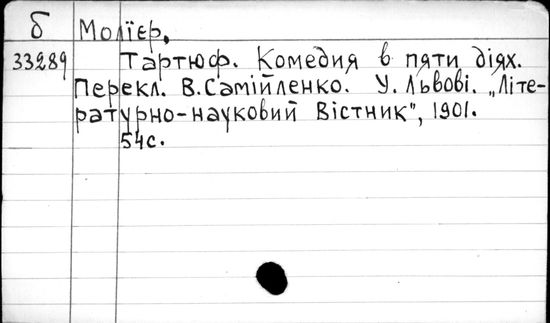 б Молієр,
33289 Тартюф. Комедия в пяти діях.
Перекл. В.Самійленко. У. Львові. „Літе-
ратурно-науковий Вістник", 1901.
54с.